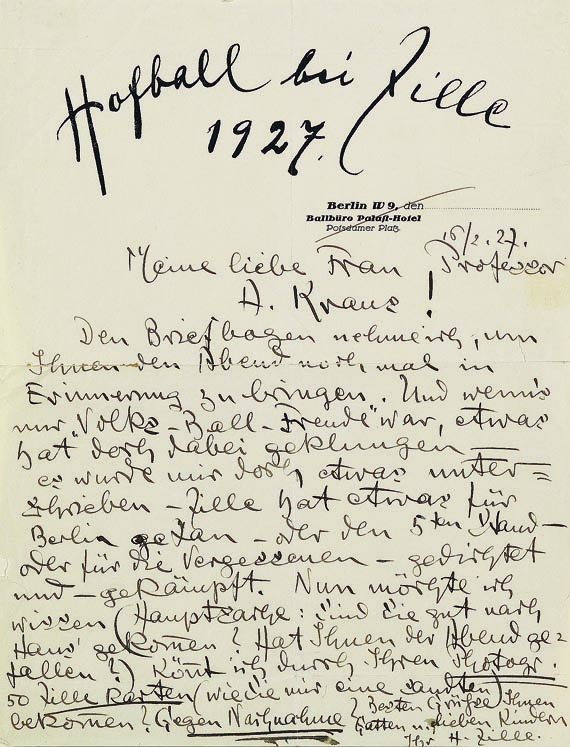 Hofball bei Zille
1927.
Berlin W 9, den
Ballbüro Palast-Hotel
Potsdamer Platz
16/2. 27.
Meine liebe Frau Professor
A. Kraus!
Den Briefbogen nehme ich, um
Ihnen den Abend noch mal in
Erinnerung zu bringen. Und wenns
nur "Volks-Ball-Freude" war, etwas
hat doch dabei geklungen —
es wurde mir doch etwas unter=
schrieben – Zille hat etwas für
Berlin getan – oder den 5ten Stand –
oder für die Vergessenen – gedichtet
und – gekämpft. Nun möchte ich
wissen (Hauptsache: sind Sie gut nach
Haus' gekomen? Hat Ihnen der Abend ge-
fallen?) Könt ich durch Ihren Photogr.
50 Zille Karten (wie die mir eine sandten)
bekomen? Gegen Nachnahme? Besten Grüsse Ihnen
Gatten u. lieben Kindern
Ihr H. Zille.